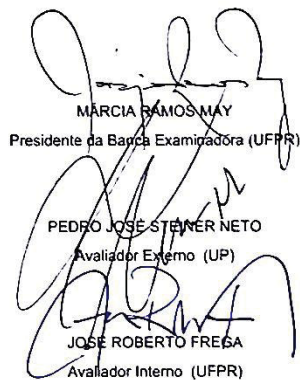 MÁRCIA RAMOS MAY
Presidente da Banca Examinadora (UFPR)
PEDRO JOSÉ STEINER NETO
Avaliador Externo (UP)
JOSÉ ROBERTO FREGA
Avaliador Interno (UFPR)